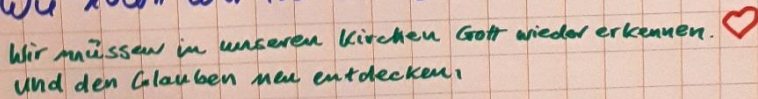 Wir müssen in unseren Kirchen Gott wieder erkennen.
und den Glauben neu entdecken,